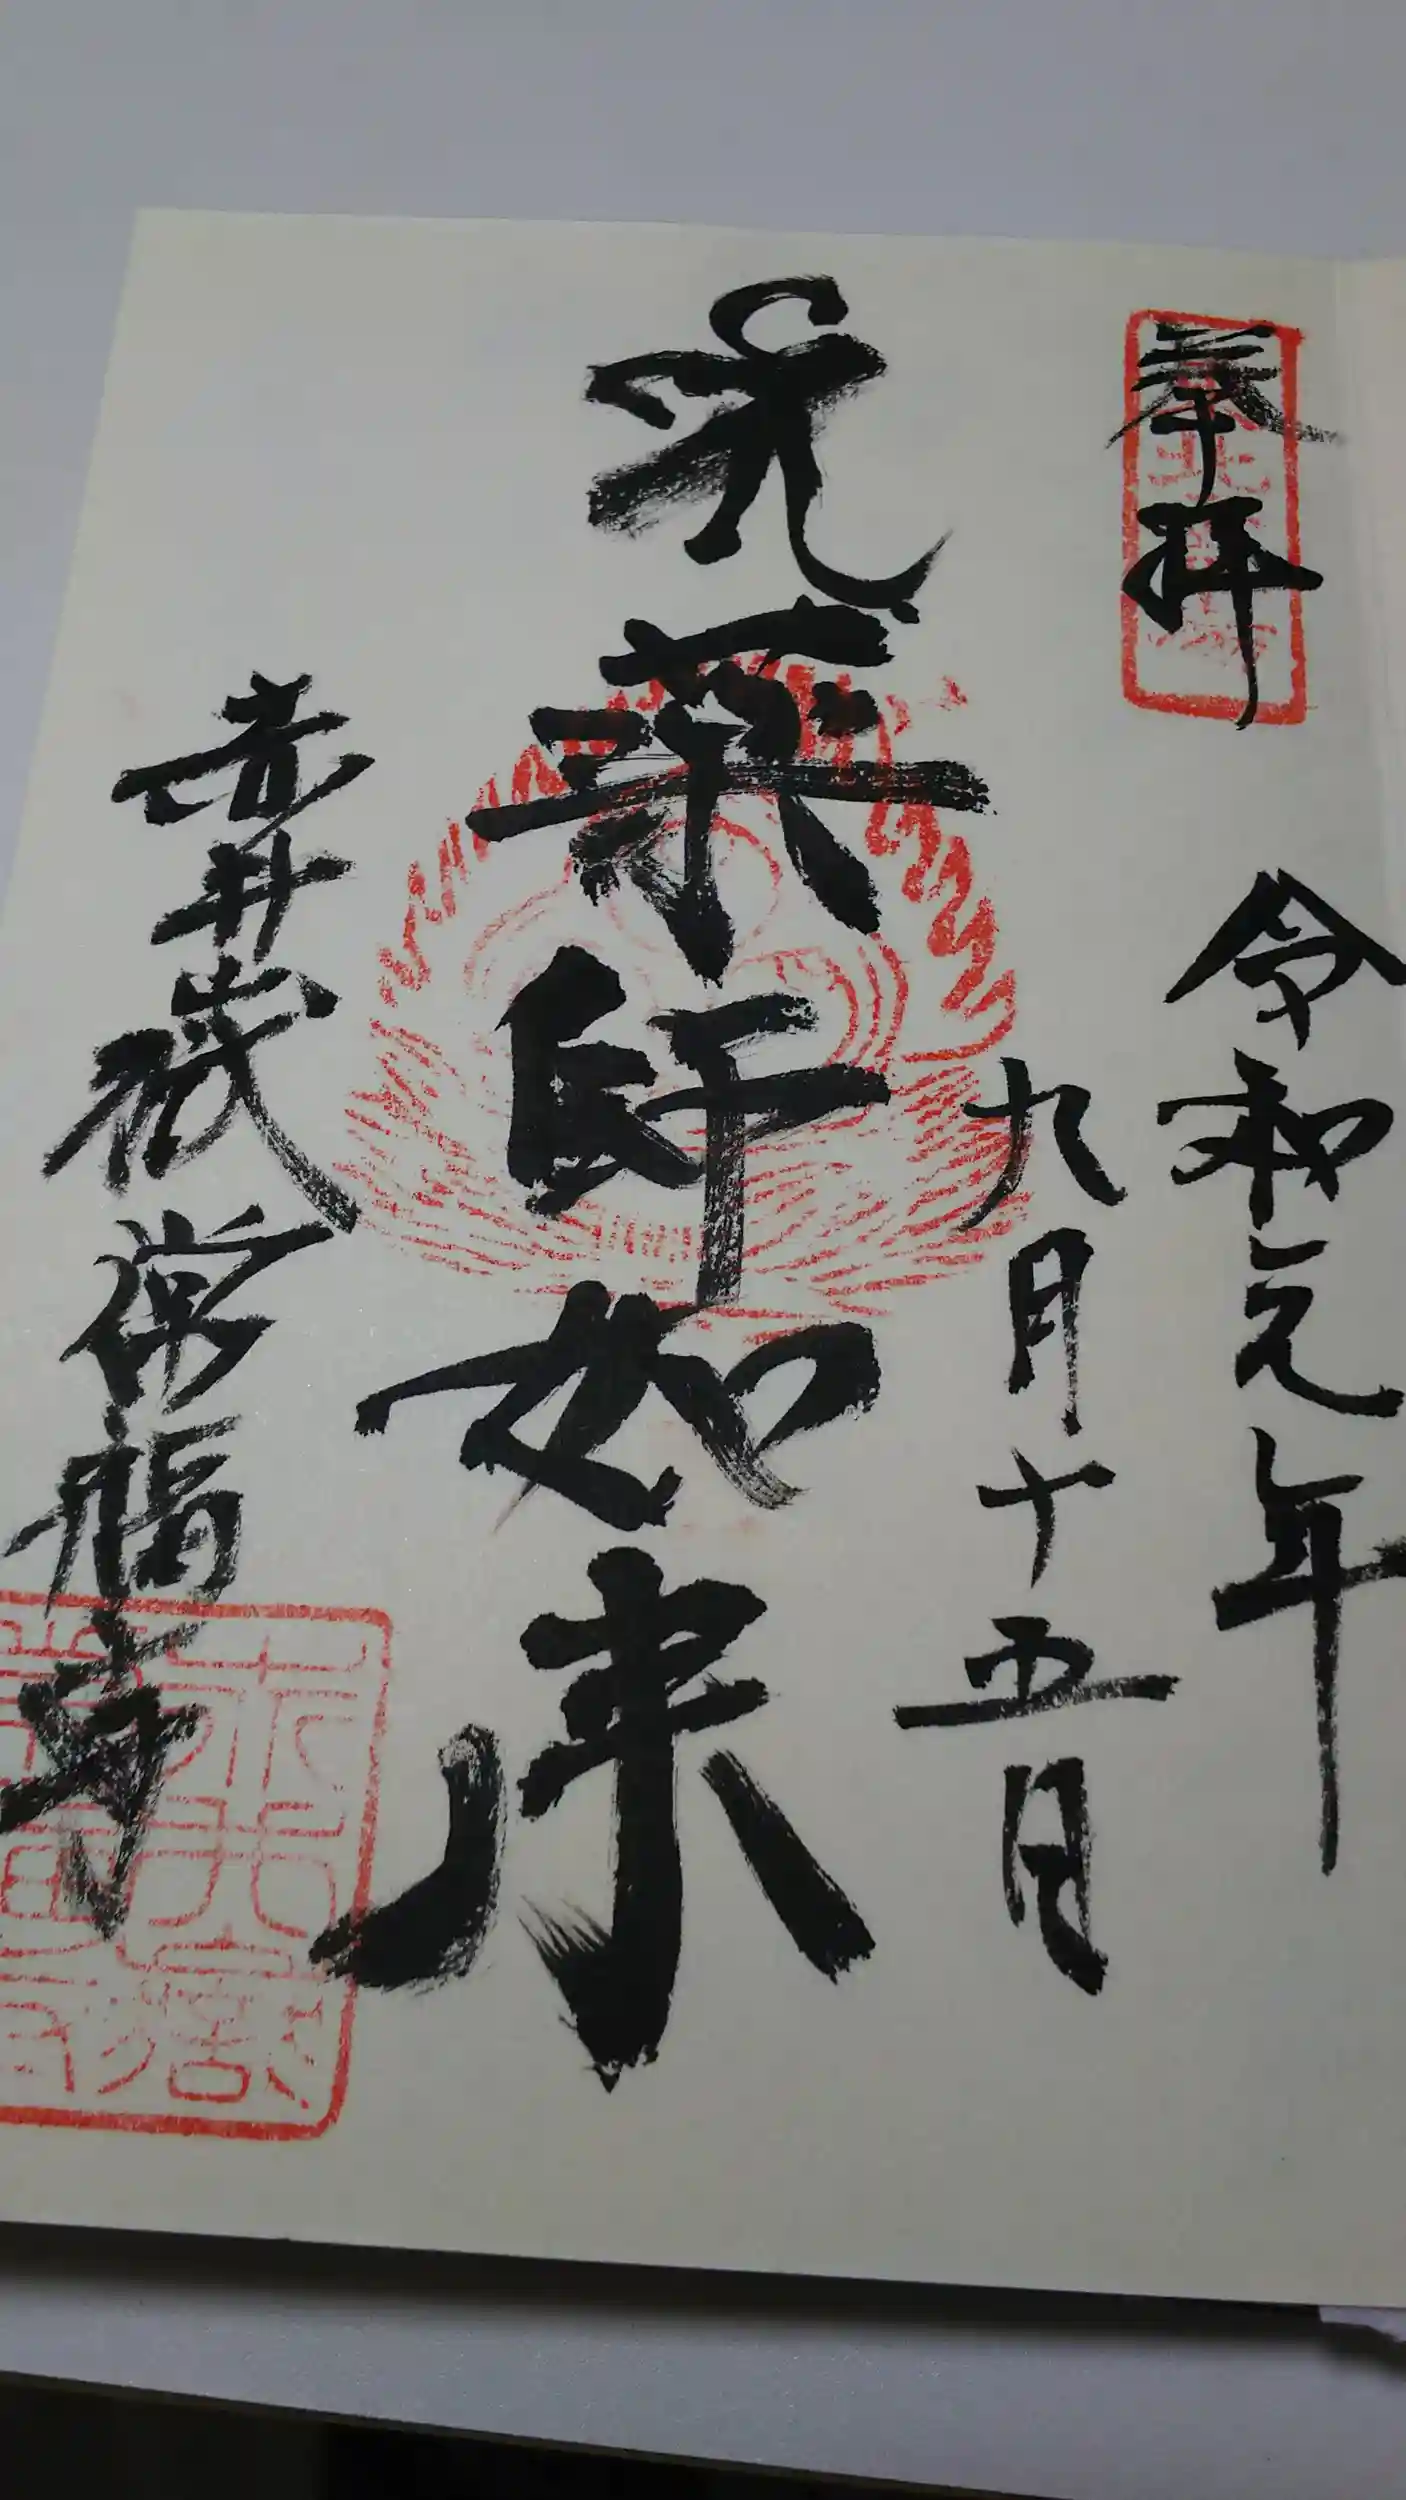 奉拝
令和元年
九月十五日
元薬師如来
赤井嶽常福寺